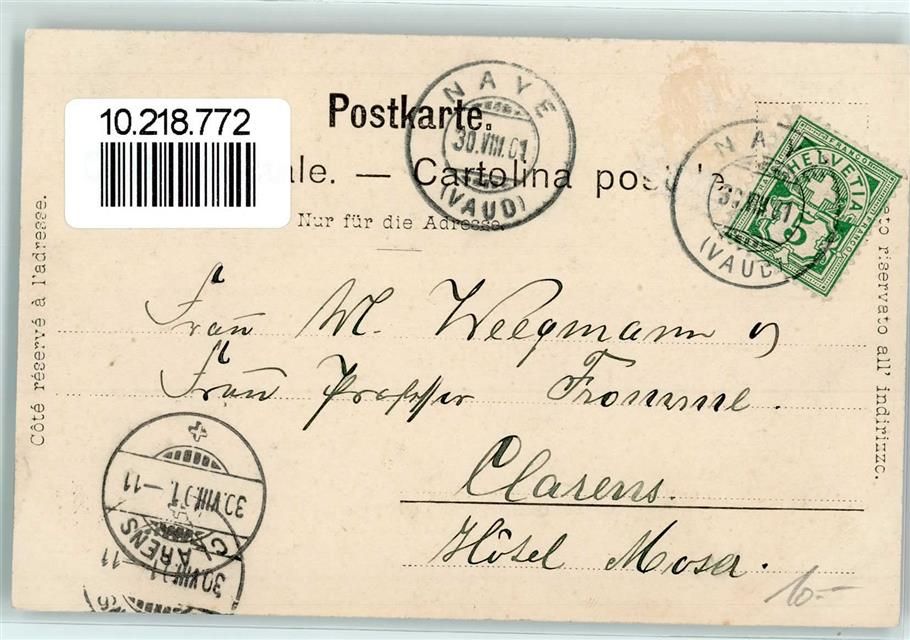 10.218.772
NAYE
30.VIII.01
(VAUD)
Postkarte.
ale. — Cartolina postale
Nur für die Adresse.
NAYE
30.VIII.01
(VAUD)
HELVETIA
FRANCO
5
Côté réservé à l'adresse.
ato riservato all' indirizzo.
Frau M. Weegmann
Frau Professor Fromme.
Clarens.
Hôtel Moser.
30.VIII.01.–11
CLARENS
30.VIII.01–11
10–